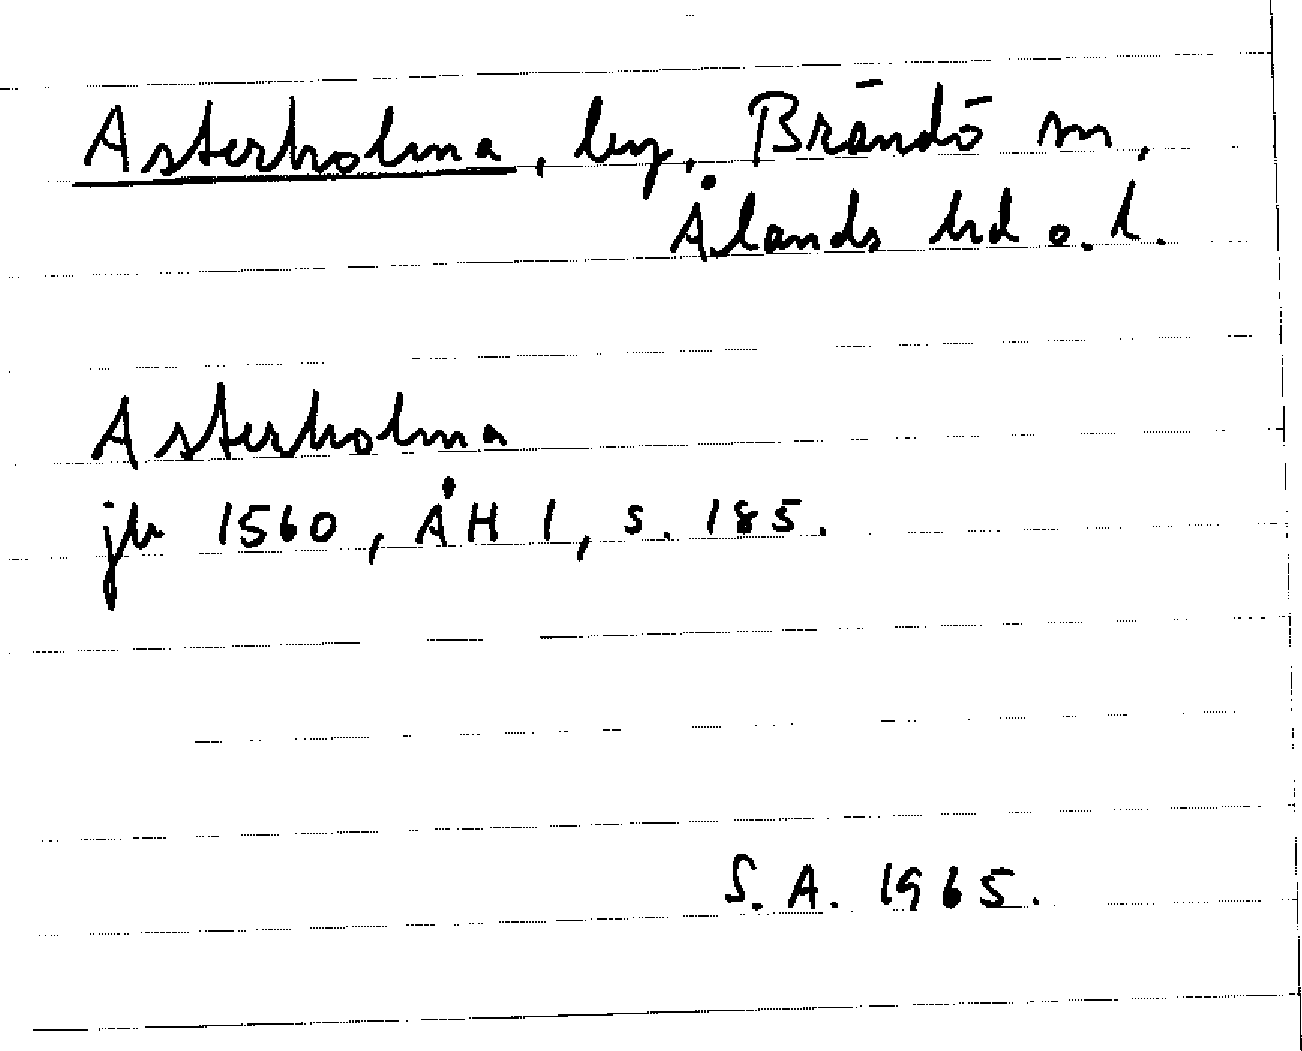 Asterholma, by, Brändö sn,
Ålands hd o. l.
Asterholma
jb 1560, ÅH 1, s. 185.
S. A. 1965.